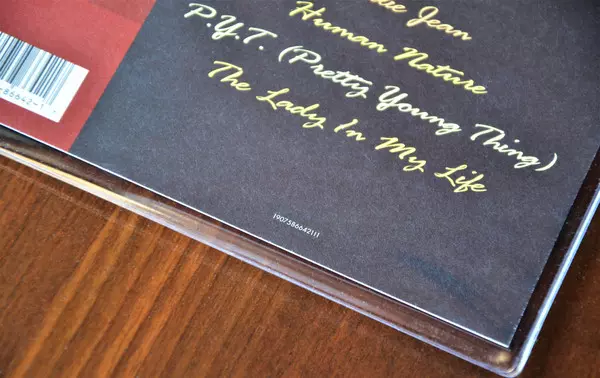 Jean
Human Nature
P.Y.T. (Pretty Young Thing)
The Lady In My Life
1907586642111